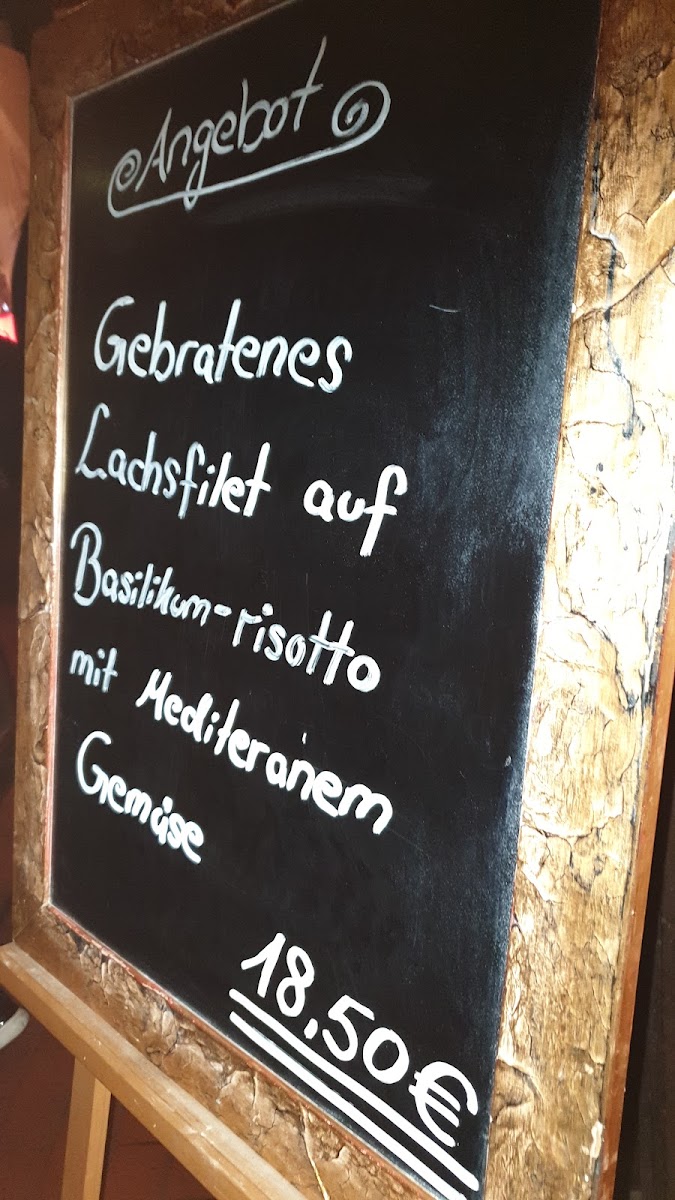 Angebot
Gebratenes
Lachsfilet auf
Basilikum-risotto
mit Mediteranem
Gemüse
18,50€